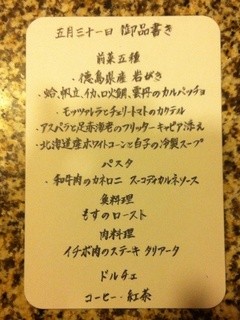 五月三十一日 御品書き
前菜五種
・徳島県産 岩がき
・蛤、帆立、イカ、口火鯛、雲丹のカルパッチョ
・モッツァレラとチェリートマトのカクテル
・アスパラと足赤海老のフリッター キャビア添え
・北海道産ホワイトコーンと白子の冷製スープ
パスタ
・和牛肉のカネロニ スーゴディカルネソース
魚料理
もずのロースト
肉料理
イチボ肉のステーキ タリアータ
ドルチェ
コーヒー・紅茶